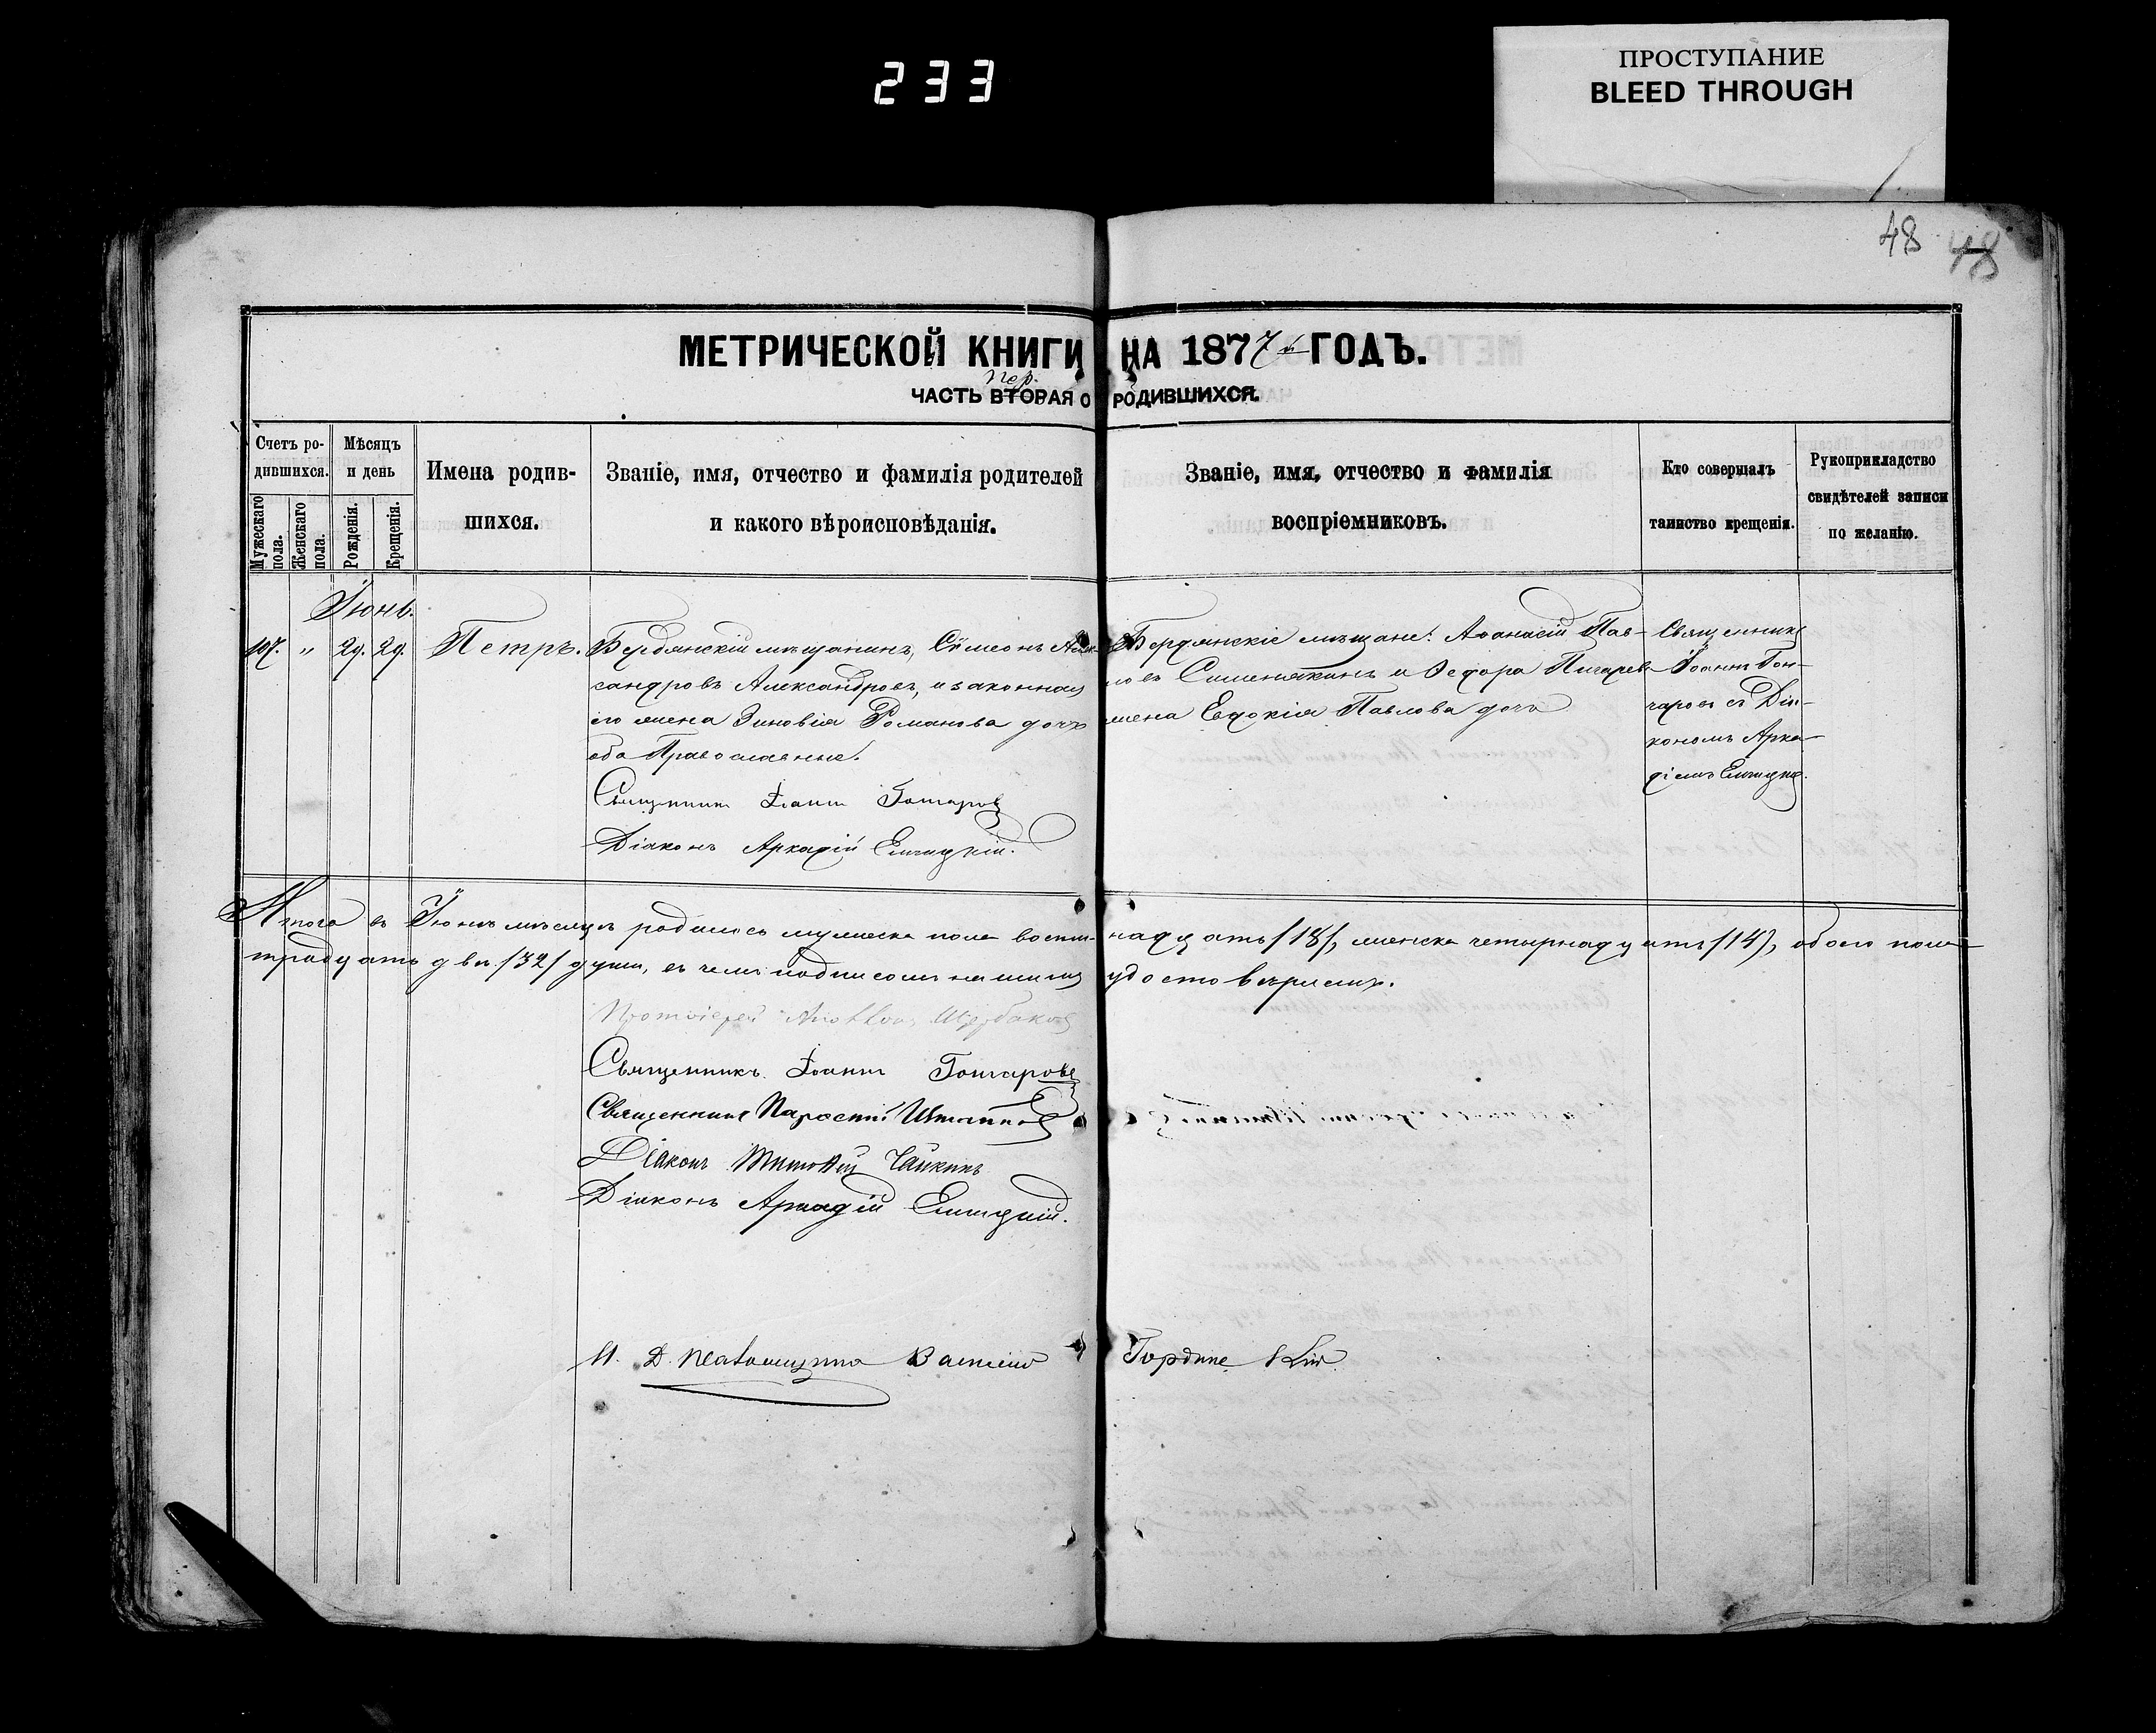 233
ПРОСТУПАНИЕ
BLEED THROUGH
48 48
МЕТРИЧЕСКОЙ КНИГИ НА 1877й ГОДЪ.
пер.
ЧАСТЬ ВТОРАЯ О РОДИВШИХСЯ.
Счетъ ро-
дившихся.
Мужескаго пола.
Женскаго пола.
Мѣсяцъ
и день
Рожденія.
Крещенія.
Имена родив-
шихся.
Званіе, имя, отчество и фамилія родителей
и какого вѣроисповѣданія.
Званіе, имя, отчество и фамилія
воспріемниковъ.
Кто совершалъ
таинство крещенія.
Рукоприкладство
свидѣтелей записи
по желанію.
Іюнь.
107. " 29. 29. Петръ.
Бердянскій мѣщанинъ, Сѵмеонъ Алек-
сандровъ Александровъ, и законная
его жена Зиновія Романова дочь
оба Православные.
Священникъ Іоаннъ Гончаровъ
Діаконъ Аркадій
Бердянскіе мѣщане: Аѳанасій Пав-
ловъ и Ѳедора
жена Евдокія Павлова дочь
Священникъ
Іоаннъ Гон-
чаровъ съ Діа-
кономъ Арка-
діемъ
Итого въ Іюнѣ мѣсяцѣ родилось мужеска пола восем-надцать /18/, женска четырнадцать /14/, обоего пола
тридцать два /32/ души, въ чемъ подписомъ нашимъ удостовѣряемъ.
Протоіерей Щербаковъ
Священникъ Іоаннъ Гончаровъ
Священникъ
Діаконъ Тимоѳей Чайкинъ
Діаконъ Аркадій
И. Д.